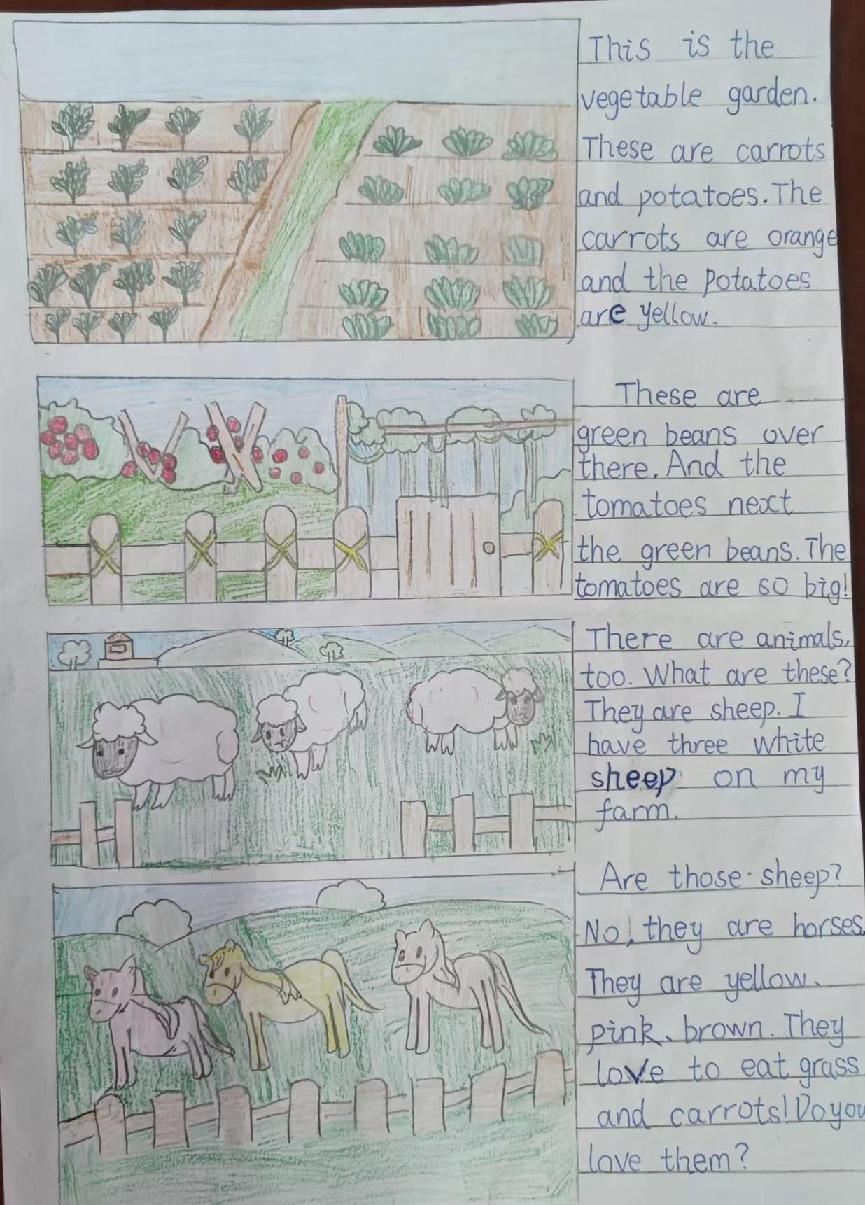 This is the
vegetable garden.
These are carrots
and potatoes. The
carrots are orange
and the potatoes
are yellow.
These are
green beans over
there. And the
tomatoes next
the green beans. The
tomatoes are so big!
There are animals,
too. What are these?
They are sheep. I
have three white
sheep on my
farm.
Are those sheep?
No, they are horses.
They are yellow、
pink、brown. They
love to eat grass
and carrots! Do you
love them?